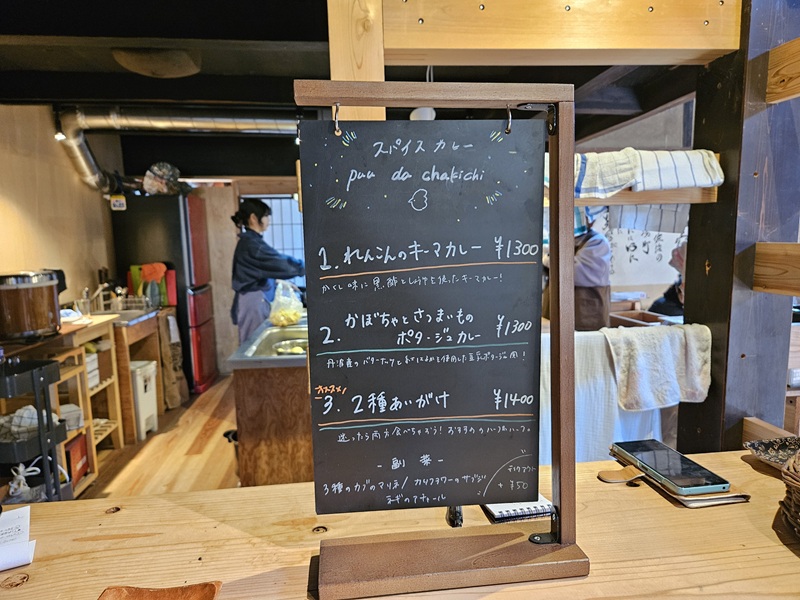 スパイスカレー
puu da chakichi
1. れんこんのキーマカレー ¥1300
かくし味に黒酢としょうゆを使ったキーマカレー!
2. かぼちゃとさつまいもの
ポタージュカレー ¥1300
丹波産のバターナッツと
を使用した豆乳ポタージュ風!
オススメ!
3. 2種あいがけ ¥1400
迷ったら両方食べちゃおう!おすすめのハーフ&ハーフ
- 副菜 -
3種のカブのマリネ/カリフラワーのサブジ
ネギのアチャール
テイクアウト
+¥50